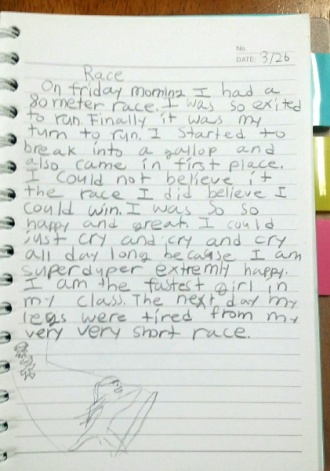 No.
DATE 3/26
Race
On friday morning I had a
80 meter race. I was so exited
to run. Finally it was my
turn to run. I started to
break into a gallop and
also came in first place.
I could not believe it
the race I did believe I
could win. I was so so
happy and great. I could
just cry and cry and cry
all day long because I am
superduper extremly happy.
I am the fastest girl in
my class. The next day my
legs were tired from my
very very short race.